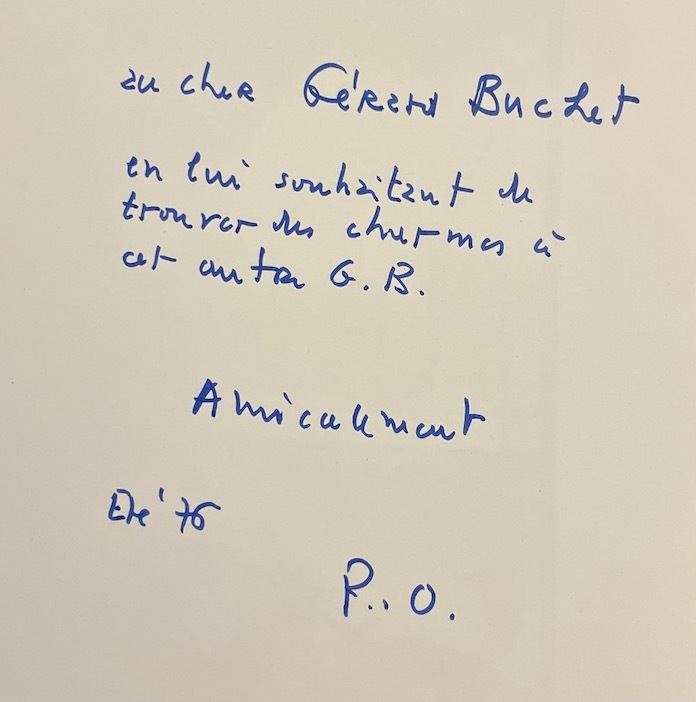 au cher Gérard Buchet
en lui souhaitant de
trouver des charmes à
cet autre G.B.
Amicalement
Eté '76
P.. O.